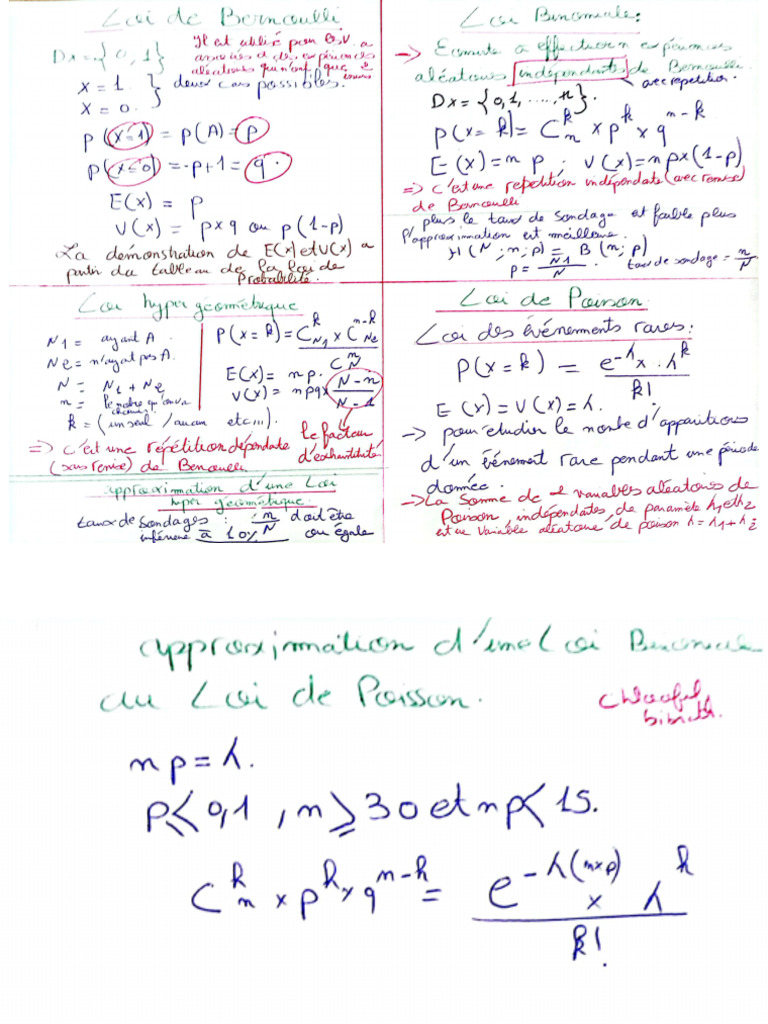 Loi de Bernoulli
Dx = {0, 1}
Il est utilisé pour V a
associés à des expériences
aléatoires qui n'ont que 2
issues
X = 1. } deux cas possibles.
X = 0.
P(X=1) = p(A) = p
P(X=0) = -p+1 = q.
E(X) = p
V(X) = p×q ou p(1-p)
La démonstration de E(X) et V(X) a
partir du tableau de la loi de
Probabilité.
Loi Binomiale:
→ Ecoute à effectuer n expériences
aléatoires indépendantes de Bernoulli.
avec répétition.
Dx = {0, 1, ..., n}.
P(X=k) = C_n^k × p^k × q^{n-k}
E(X) = n p ; V(X) = n p×(1-p)
=> c'est une repetition indépendate (avec remise)
de Bernoulli
plus le taux de sondage est faible plus
l'approximation est meilleure.
H(N; n; p) = B(n; p)
p = N1/N taux de sondage = n/N
Loi hyper géométrique
N1 = ayant A.
N2 = n'ayant pas A.
N = N1 + N2
n =
k = (un seul / aucun etc...).
P(X=k) = C_{N1}^k × C_{N2}^{n-k} / C_N^n
E(X) = np.
V(X) = npq× N-n / N-1
le facteur
d'exhaustivité
=> c'est une répétition dépendate
(sans remise) de Bernoulli
approximation d'une Loi
hyper géométrique.
taux de sondages : n/N doit être
inférieure à 10% ou égale
Loi de Poisson.
Loi des événements rares:
P(X=k) = e^{-λ} × λ^k / k!
E(X) = V(X) = λ.
→ pour étudier le nombre d'apparitions
d'un événement rare pendant une période
donnée.
→ La Somme de 2 variables aléatoires de
Poisson indépendates, de paramètre λ1 et λ2
est une variable aléatoire de poisson λ = λ1 + λ2
approximation d'une Loi Binomiale
au Loi de Poisson.
np = λ.
p < 0,1 , n ≥ 30 et np < 15.
C_n^k × p^k × q^{n-k} = e^{-λ(n×p)} × λ^k / k!